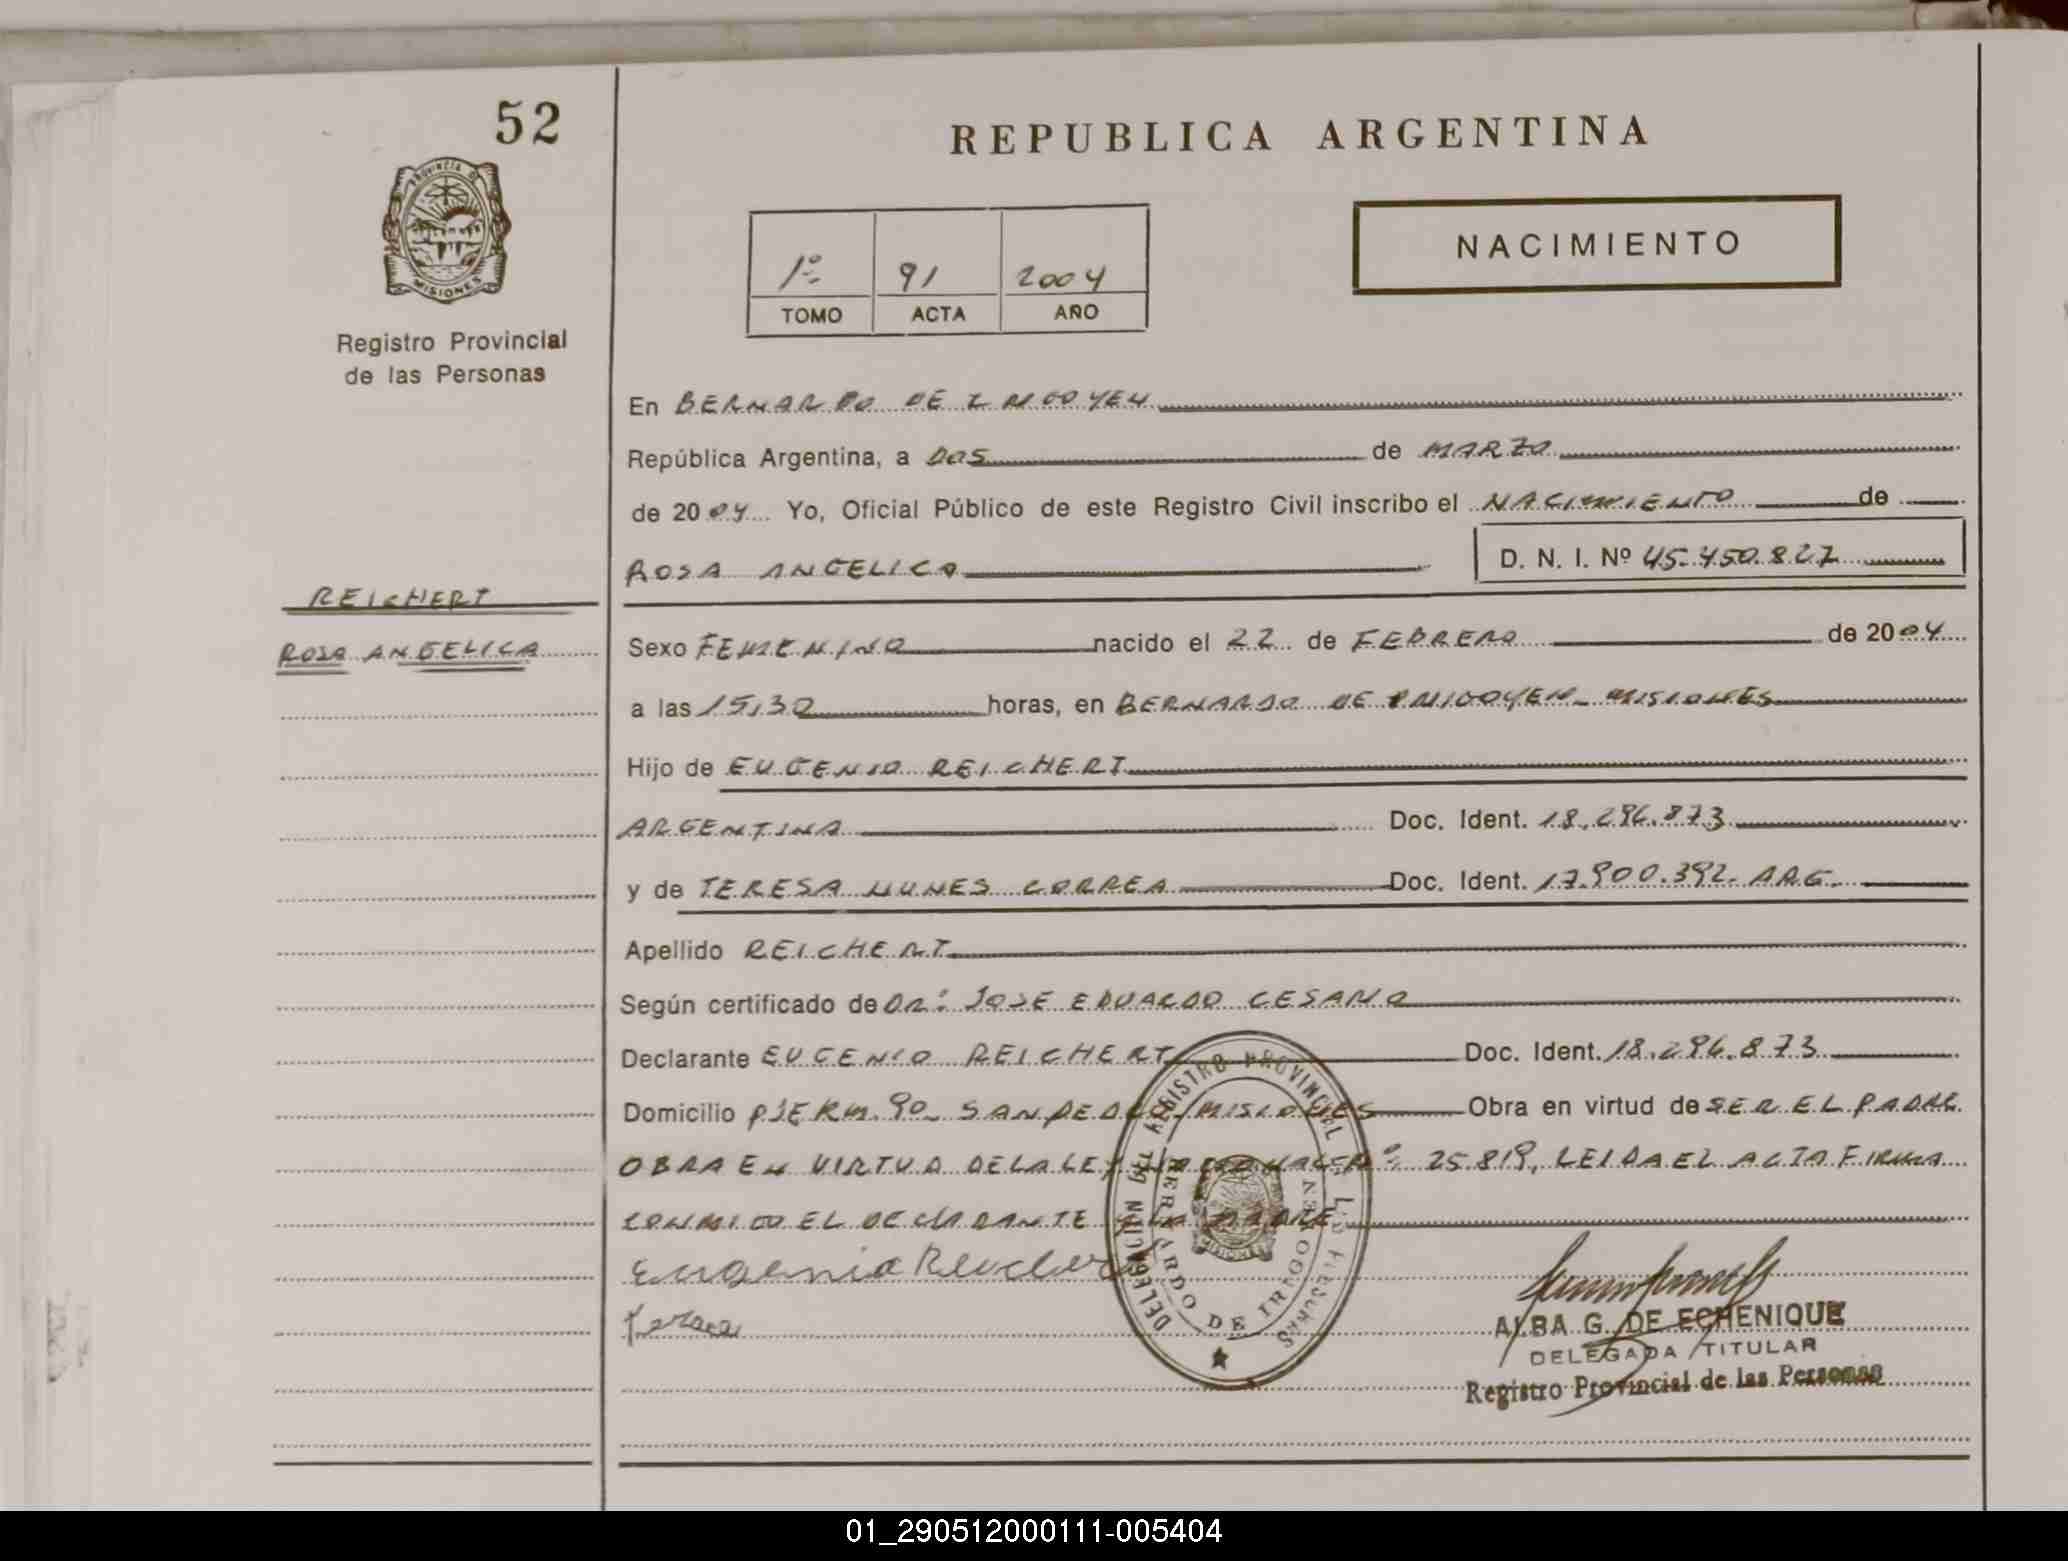 52
PROVINCIA DE
MISIONES
Registro Provincial
de las Personas
REPUBLICA ARGENTINA
NACIMIENTO
1º 91 2004
TOMO ACTA AÑO
En BERNARDO DE IRIGOYEN
República Argentina, a DOS de MARZO
de 2004 Yo, Oficial Público de este Registro Civil inscribo el NACIMIENTO de
ROSA ANGELICA D. N. I. Nº 45.450.827
REICHERT
ROSA ANGELICA
Sexo FEMENINO nacido el 22 de FEBRERO de 2004
a las 15,30 horas, en BERNARDO DE IRIGOYEN - MISIONES
Hijo de EUGENIO REICHERT
ARGENTINA Doc. Ident. 18.296.873
y de TERESA NUNES CORREA Doc. Ident. 17.900.392. ARG.
Apellido REICHERT
Según certificado de DR: JOSE EDUARDO CESANO
Declarante EUGENIO REICHERT Doc. Ident. 18.296.873
Domicilio PJE KM. 90 - SAN PEDRO, MISIONES Obra en virtud de SER EL PADRE
OBRA EN VIRTUD DE LA LEY NACIONAL Nº 25.819, LEIDA EL ACTA FIRMA
CONMIGO EL DECLARANTE Y LA MADRE
Eugenio Reichert
Teresa
DELEGACION DEL REGISTRO PROVINCIAL DE LAS PERSONAS
BERNARDO DE IRIGOYEN
MISIONES
ALBA G. DE ECHENIQUE
DELEGADA TITULAR
Registro Provincial de las Personas
01_290512000111-005404